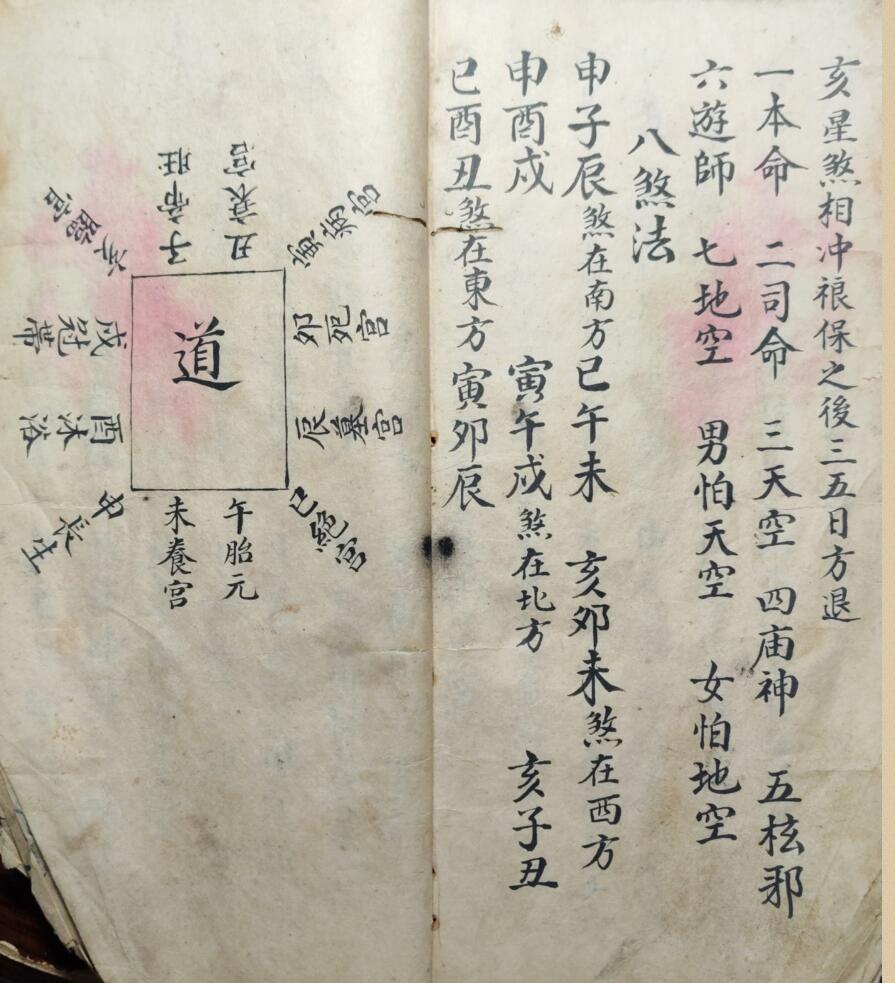 亥星煞相冲禳保之後三五日方退
一本命 二司命 三天空 四庙神 五枉邪
六遊師 七地空 男怕天空 女怕地空
八煞法
申子辰煞在南方 巳午未 亥卯未煞在西方
申酉戌 寅午戌煞在北方 亥子丑
巳酉丑煞在東方 寅卯辰
道
子帝旺
丑衰宫
寅病宫
卯死宫
辰墓宫
巳絕宫
午胎元
未養宫
申長生
酉沐浴
戌冠帶
亥臨宫